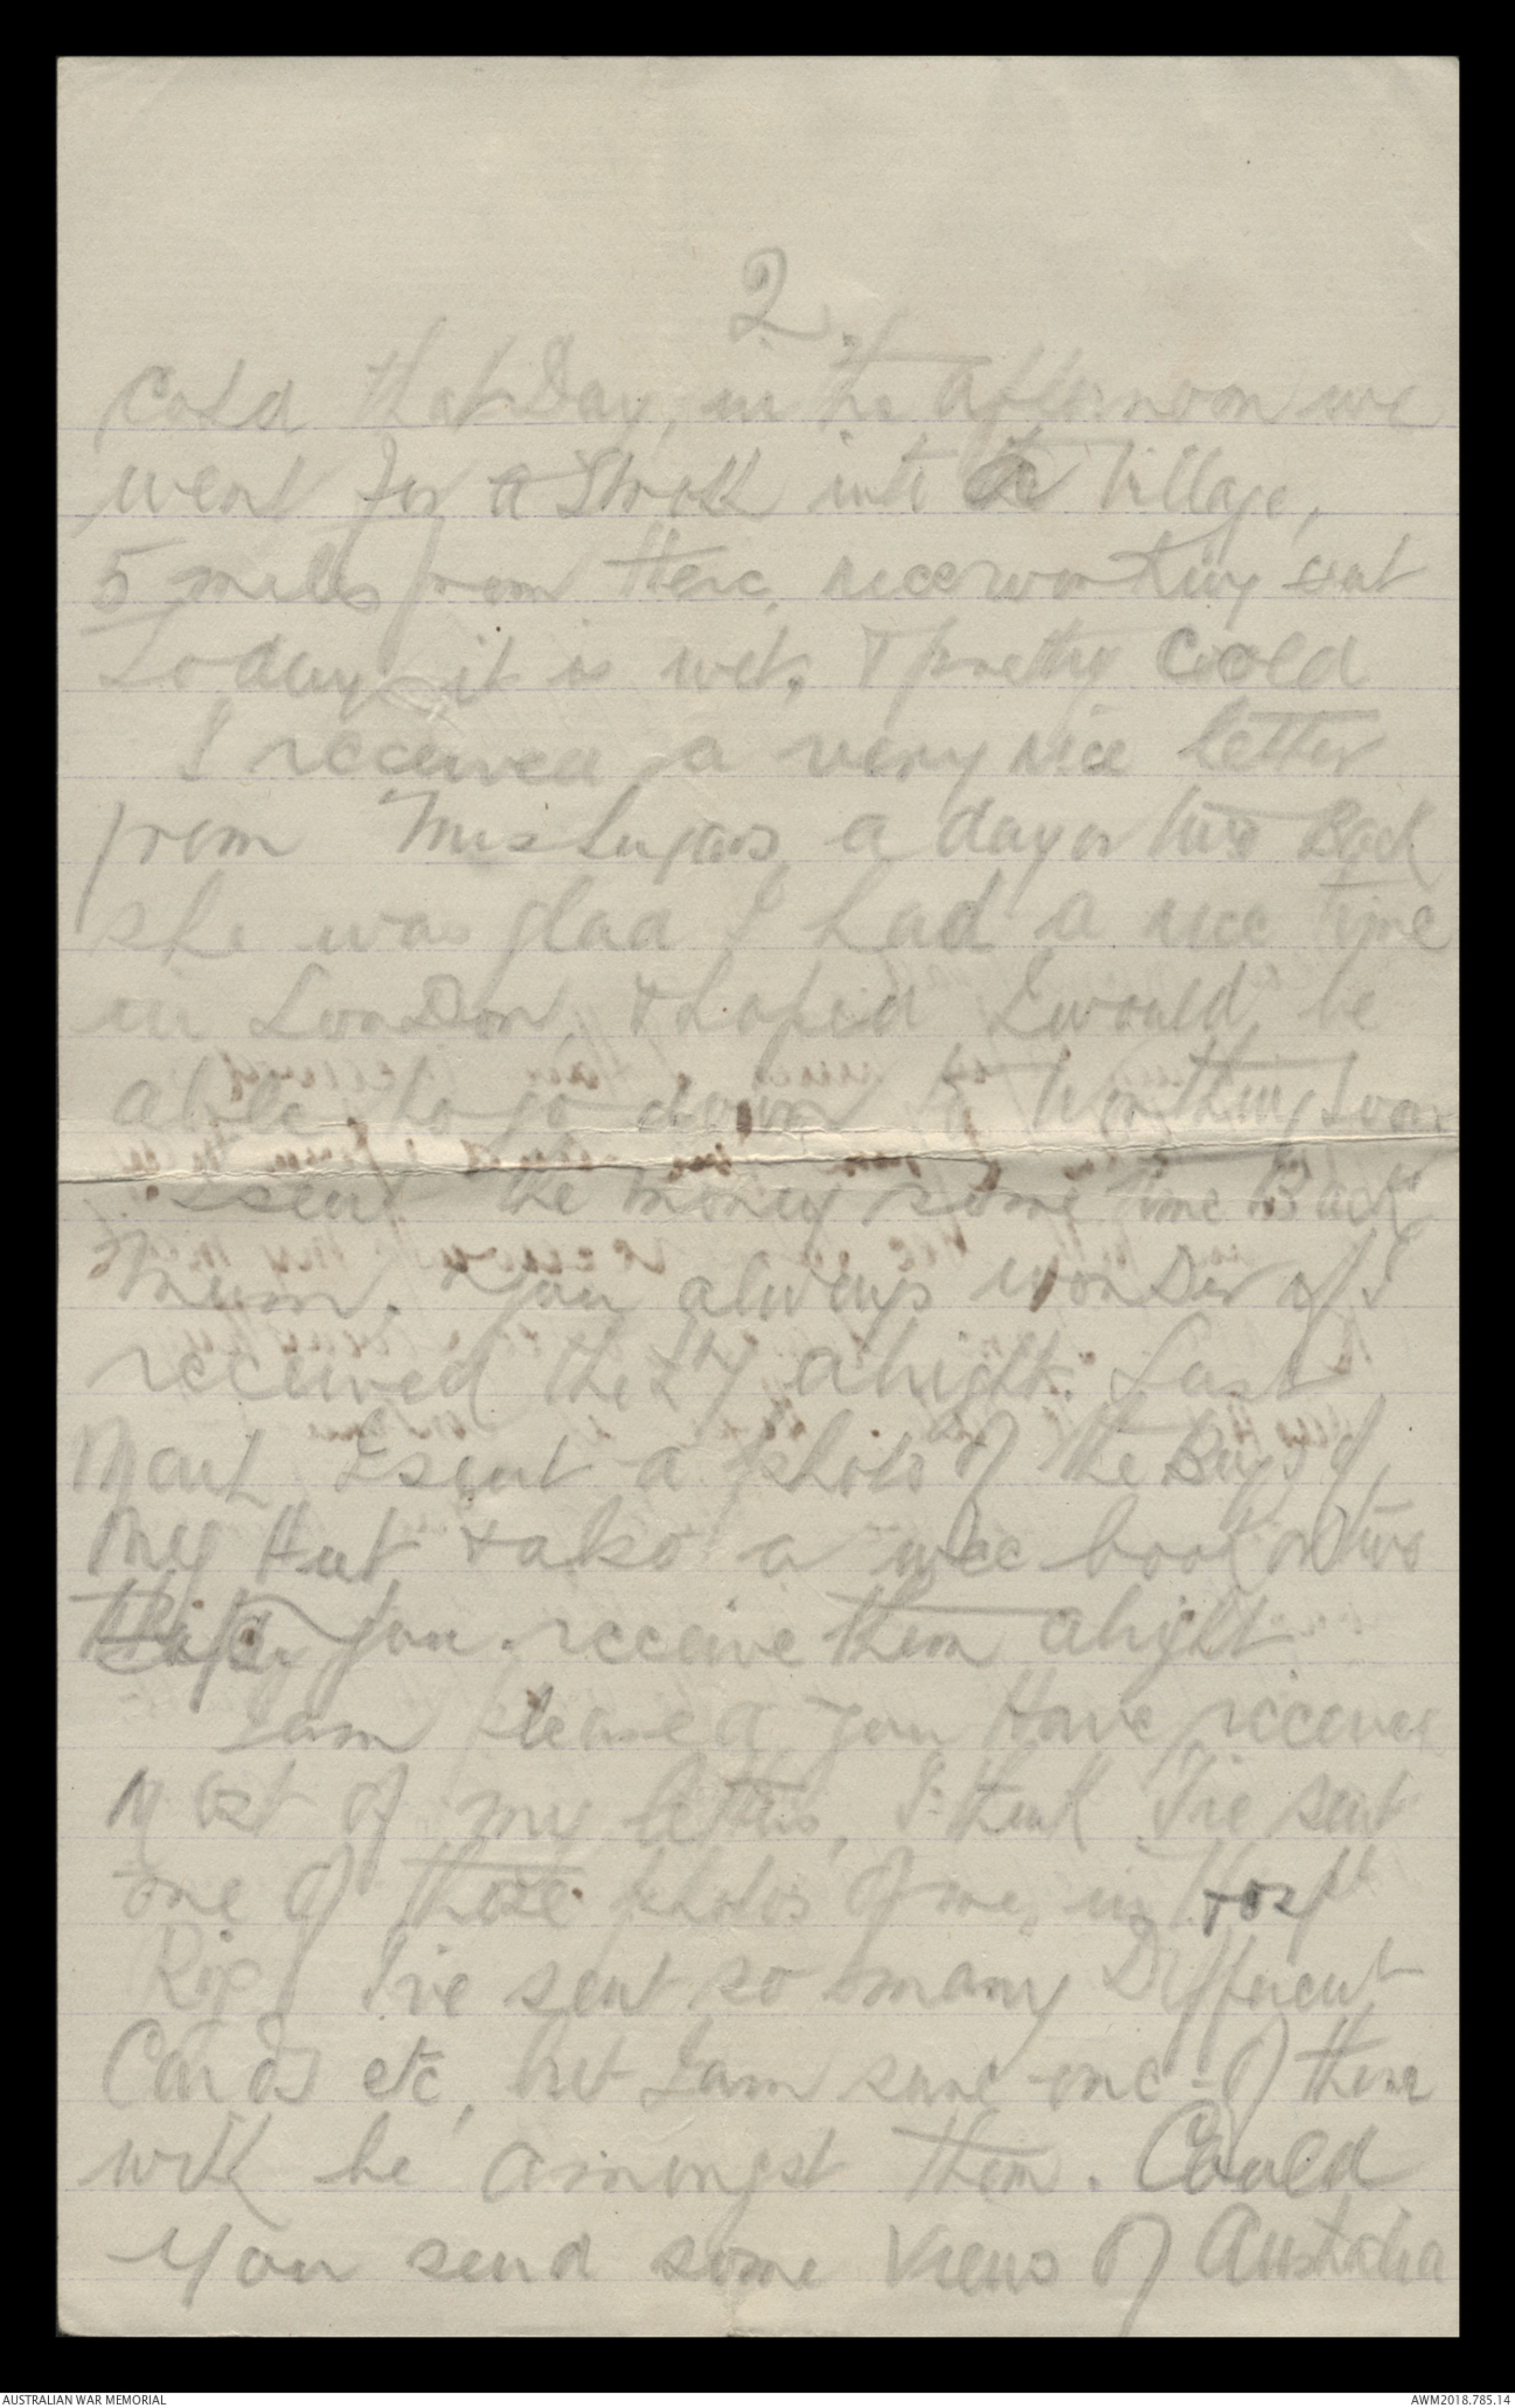 2.
Cold that Day, in the afternoon we
went for a Stroll into the Village,
5 miles from there, nice working out
Today it is wet, & pretty Coold
I received a very nice letter
from Mrs Lugars a day or two Back
she was glad I had a nice time
in LonDon, & hoped I would be
able to go down to Worthing soon
I sent the money some time Back
Mum. You always wonDer if I
received the £4 alright. Last
Mail I sent a photo of the Boys of
My Hut & also a wee book or two
Hope you receive them alright
I am pleased you Have receive
Most of my letters, I think I've sent
one of those photos of me, in Hospl
Rig I've sent so many Different
Cards etc, but I am sure one of them
will be amongst them. Could
You send some Views of Australia
AUSTRALIAN WAR MEMORIAL
AWM2018.785.14